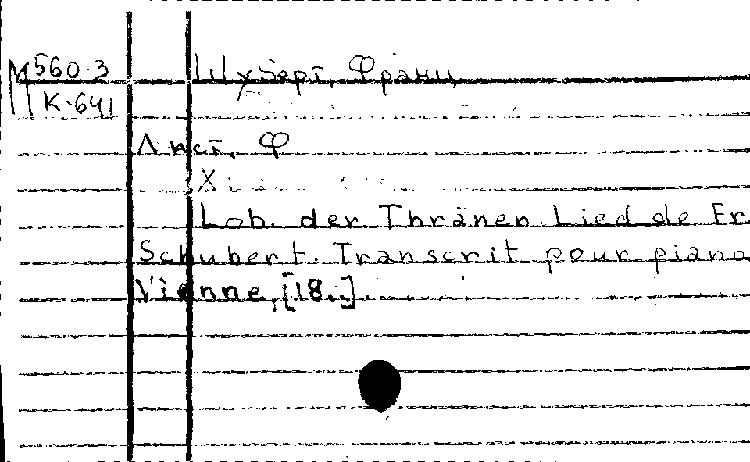 М 560-3
К-641
Шуберт, Франц
Лист, Ф
Lob. der Thränen Lied de Fr.
Schubert. Transcrit pour piano
Vienne, [18..].